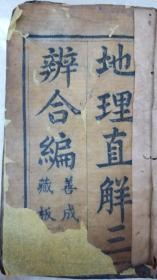 地理直解三
辨合編
善成
藏板